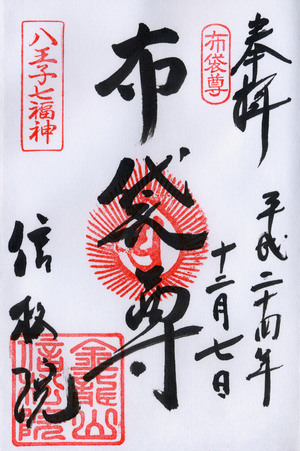 奉拝
布袋尊
平成二十四年
十二月七日
布袋尊
八王子七福神
信松院
金龍山
信松院